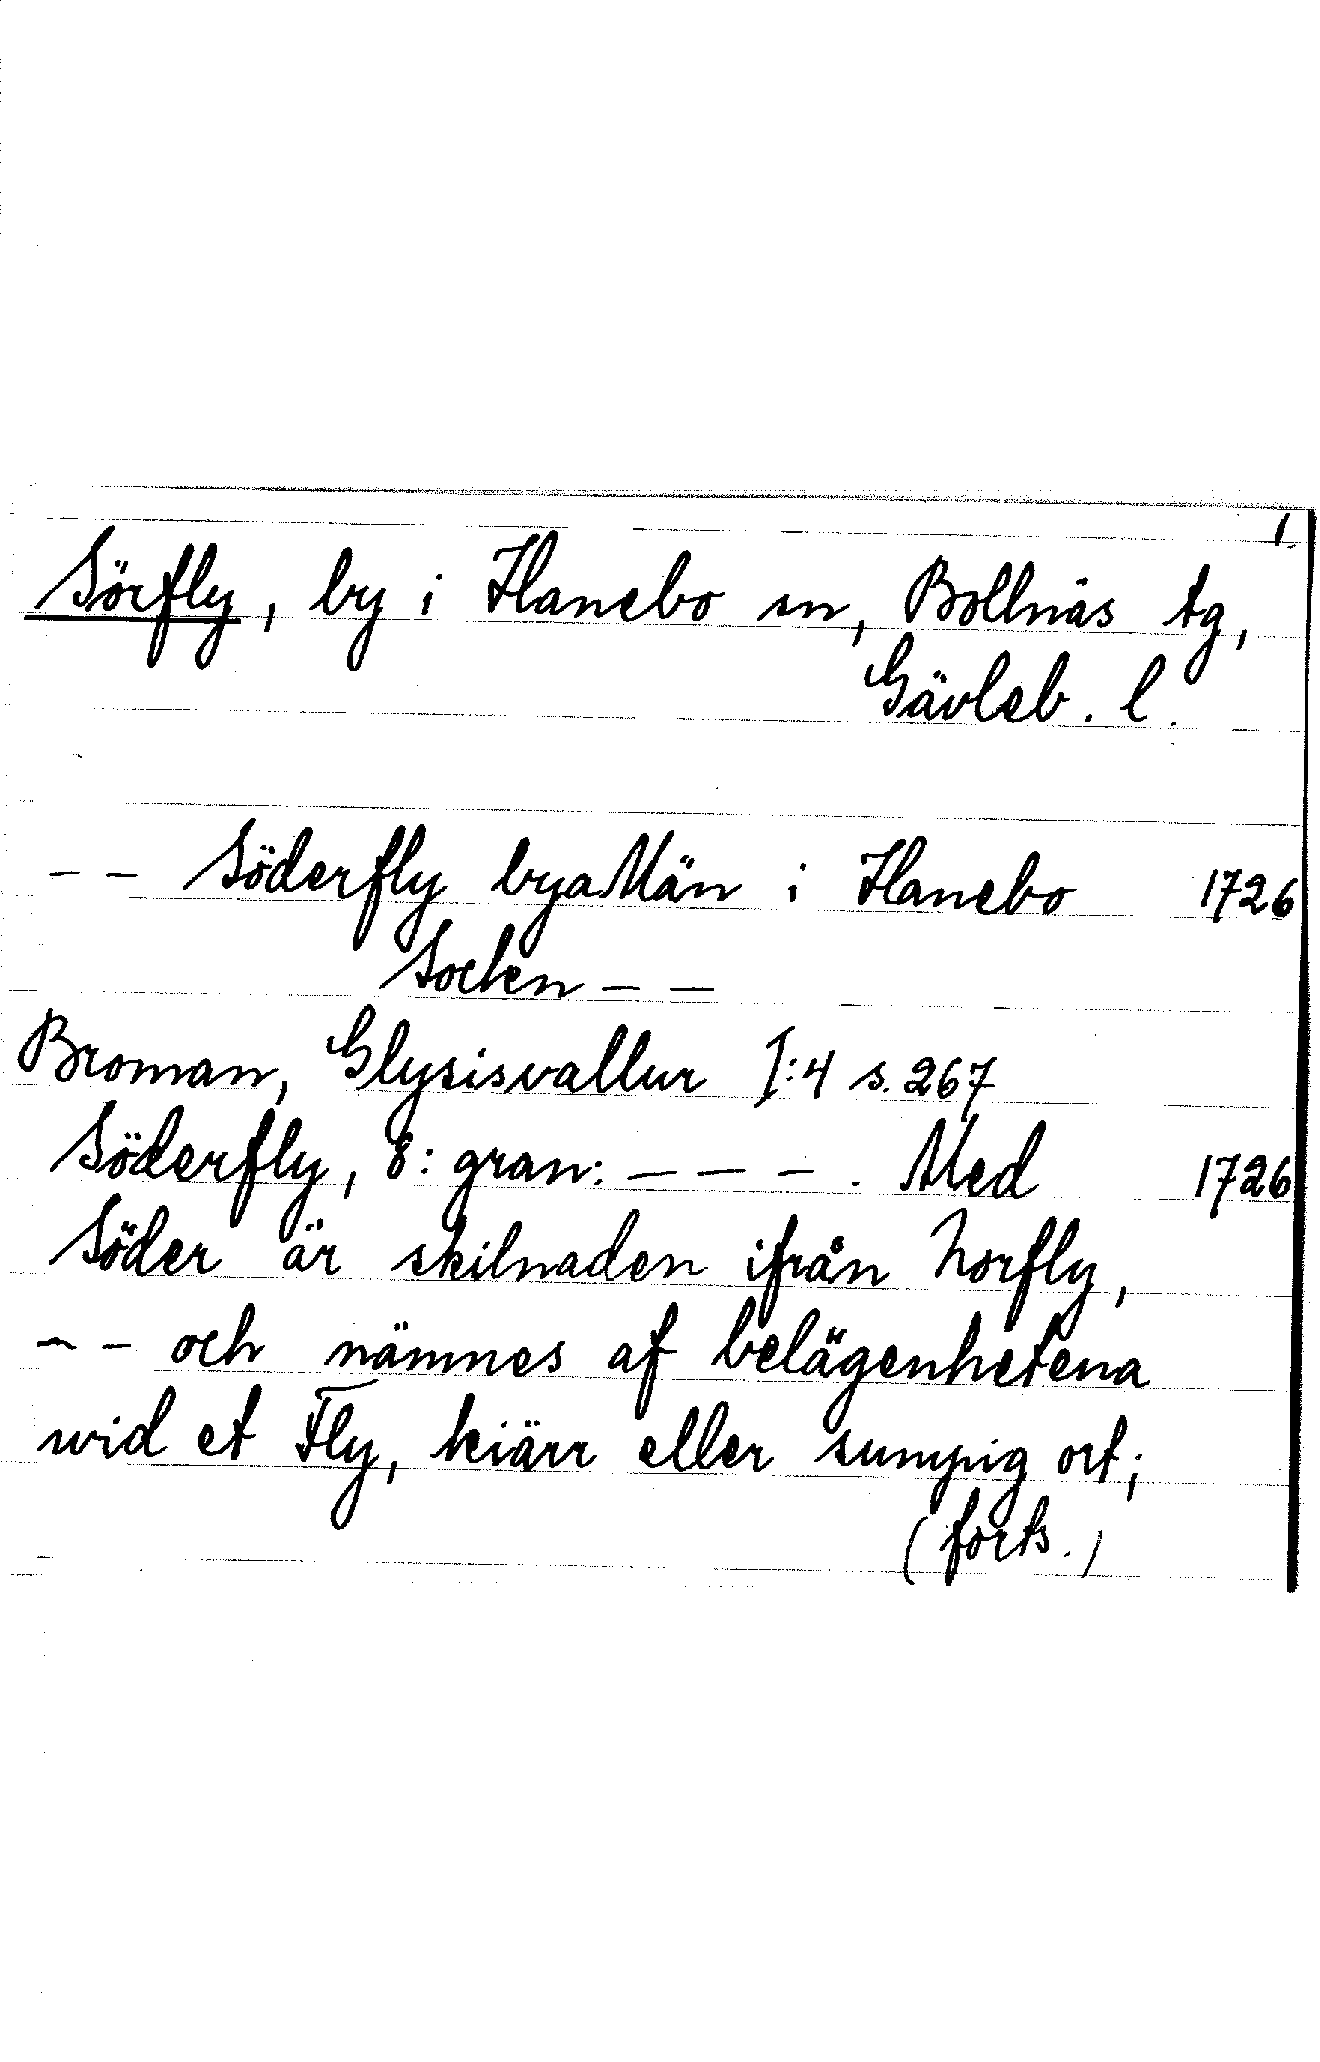 1.
Sörfly, by i Hanebo sn, Bollnäs tg,
Gävleb. l.
-- Söderfly byaMän i Hanebo 1726
Socken --
Broman, Glysisvallur I:4 s. 267
Söderfly, 8: gran: ---. Med 1726
Söder är skilnaden ifrån Norfly,
-- och nämnes af belägenhetena
wid et Fly, kiärr eller sumpig ort;
(forts.)